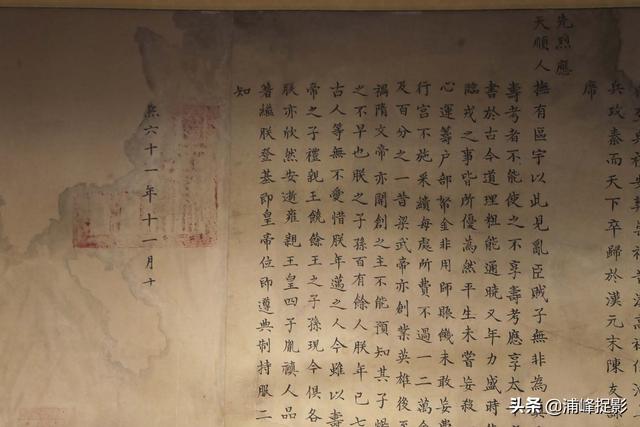 兵攻秦而天下卒歸於漢元末陳友諒
席
先烈應
天順人撫有區宇以此見亂臣賊子無非為
壽考者不能使之不享壽考應享太
書於古今道理粗能通曉又年力盛時
臨戎之事皆所優為然平生未嘗妄殺
心運籌戶部帑金非用師賑饑未敢妄費
行宮不施采繢每處所費不過一二萬金
及百分之一昔梁武帝亦創業英雄後至
禍隋文帝亦開創之主不能預知其子煬
之不早也朕之子孫百有餘人朕年已七
古人等無不愛惜朕年邁之人今雖以壽
帝之子禮親王饒餘王之子孫現今俱各
朕亦欣然安逝雍親王皇四子胤禛人品
著繼朕登基即皇帝位即遵典制持服二
知
熙六十一年十一月十
头条 @浦峰捉影